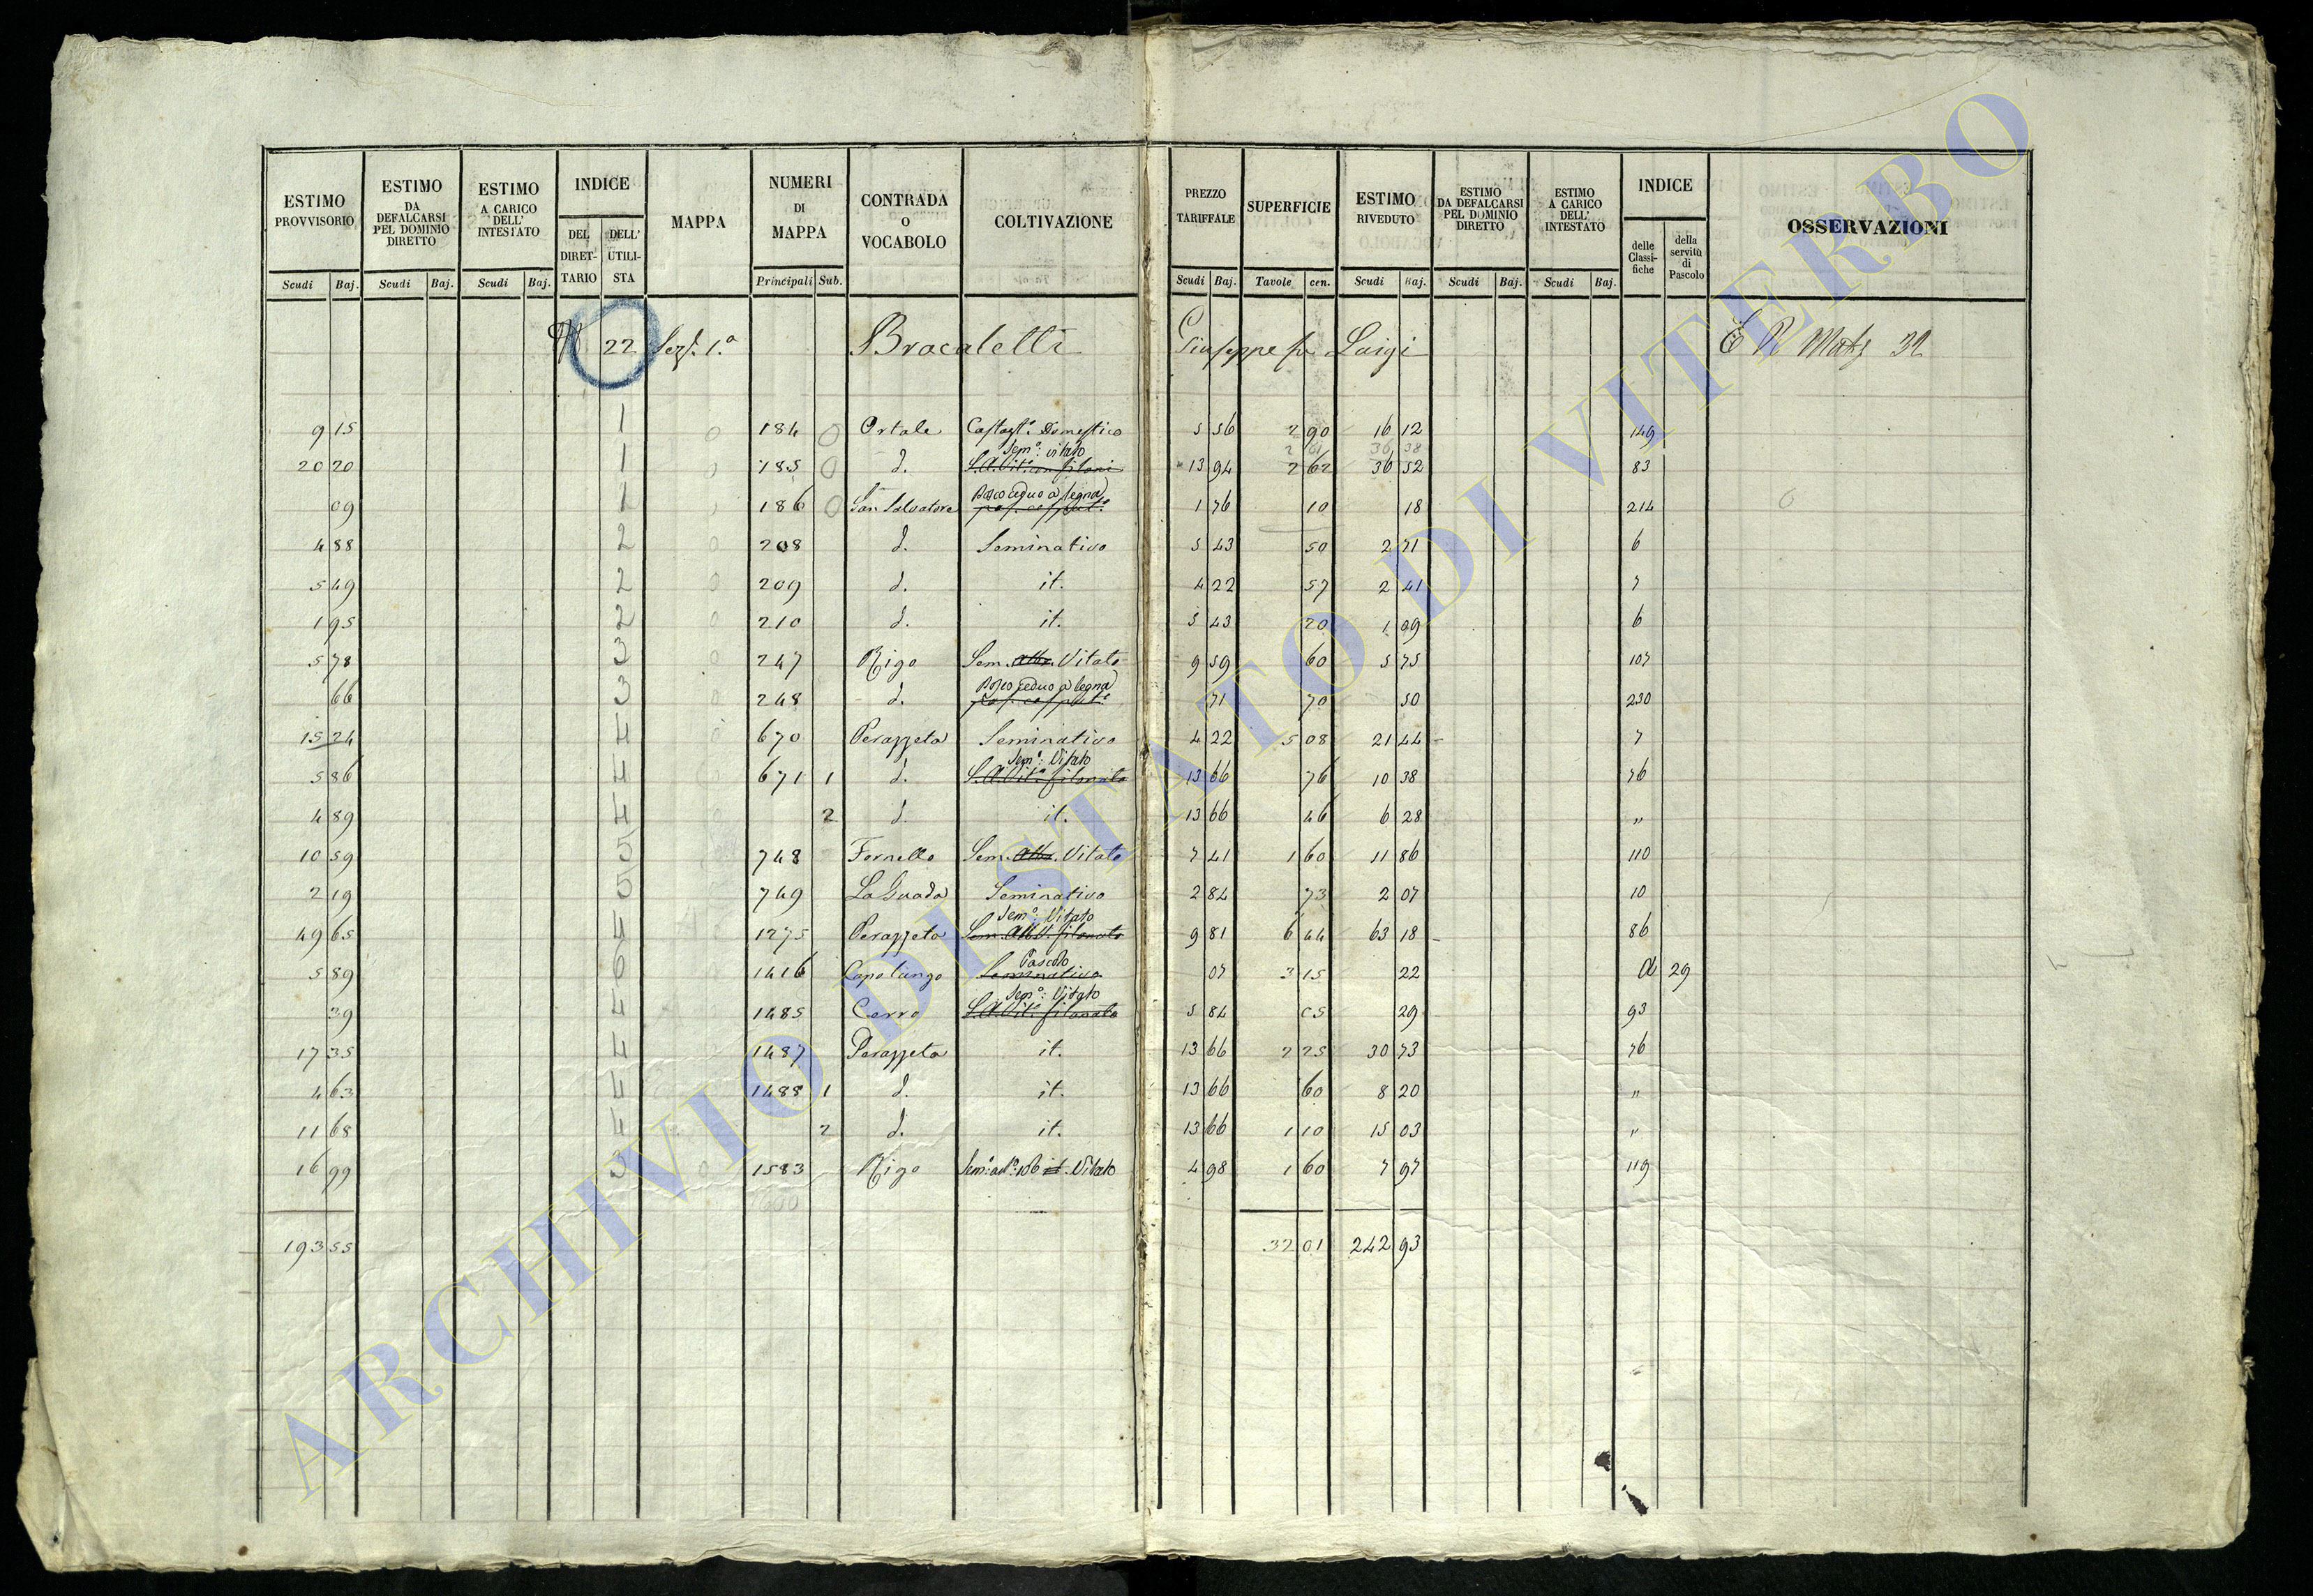 ESTIMO PROVVISORIO Scudi Baj.
ESTIMO DA DEFALCARSI PEL DOMINIO DIRETTO Scudi Baj.
ESTIMO A CARICO DELL' INTESTATO Scudi Baj.
INDICE DEL DIRETTARIO DELL' UTILISTA
MAPPA
NUMERI DI MAPPA Principali Sub.
CONTRADA O VOCABOLO
COLTIVAZIONE
PREZZO TARIFFALE Scudi Baj.
SUPERFICIE Tavole cen.
ESTIMO RIVEDUTO Scudi Baj.
ESTIMO DA DEFALCARSI PEL DOMINIO DIRETTO Scudi Baj.
ESTIMO A CARICO DELL' INTESTATO Scudi Baj.
INDICE delle Classifiche della servitù di Pascolo
OSSERVAZIONI
22 Sez. 1.a Bracaletti Giuseppe fu Luigi 32
9 15 1 184 0 Ortale Castag.o Domestico 5 56 2 90 16 12 149
Sem.o: vitato 2 61 36 38
20 20 1 185 0 d. S.A.Vit. con filoni 13 94 2 62 36 52 83
Bosco ceduo a legna
09 1 186 0 San Salvatore 1 76 10 18 214
4 88 2 208 d. Seminativo 5 43 50 2 71 6
5 49 2 209 d. it. 4 22 57 2 41 7
1 95 2 210 d. it. 5 43 20 1 09 6
5 78 3 247 Rigo Sem. Alb. Vitato 9 59 60 5 75 107
Bosco ceduo a legna
66 3 248 d. 71 70 50 230
15 24 4 670 Perazzeta Seminativo 4 22 5 08 21 44 7
Sem.o: Vitato
5 86 4 671 1 d. S.A.Vit.o filonato 13 66 76 10 38 76
4 89 4 2 d. it. 13 66 46 6 28 "
10 59 5 748 Fornello Sem. Alb. Vitato 7 41 1 60 11 86 110
2 19 5 749 La Guada Seminativo 2 84 73 2 07 10
Sem.o: Vitato
49 65 4 1275 Perazzeta Sem. Alb.V. filonato 9 81 6 44 63 18 86
Pascolo
5 89 6 1416 Capolungo Seminativo 07 3 15 22 a 29
Sem.o: Vitato
39 4 1485 Cerro S.A.Vit. filonato 5 84 05 29 93
17 35 4 1487 Perazzeta it. 13 66 2 25 30 73 76
4 63 4 1488 1 d. it. 13 66 60 8 20 "
11 68 4 2 d. it. 13 66 1 10 15 03 "
16 99 3 1583 Rigo Vitato 4 98 1 60 7 97 119
193 55 32 01 242 93
ARCHIVIO DI STATO DI VITERBO